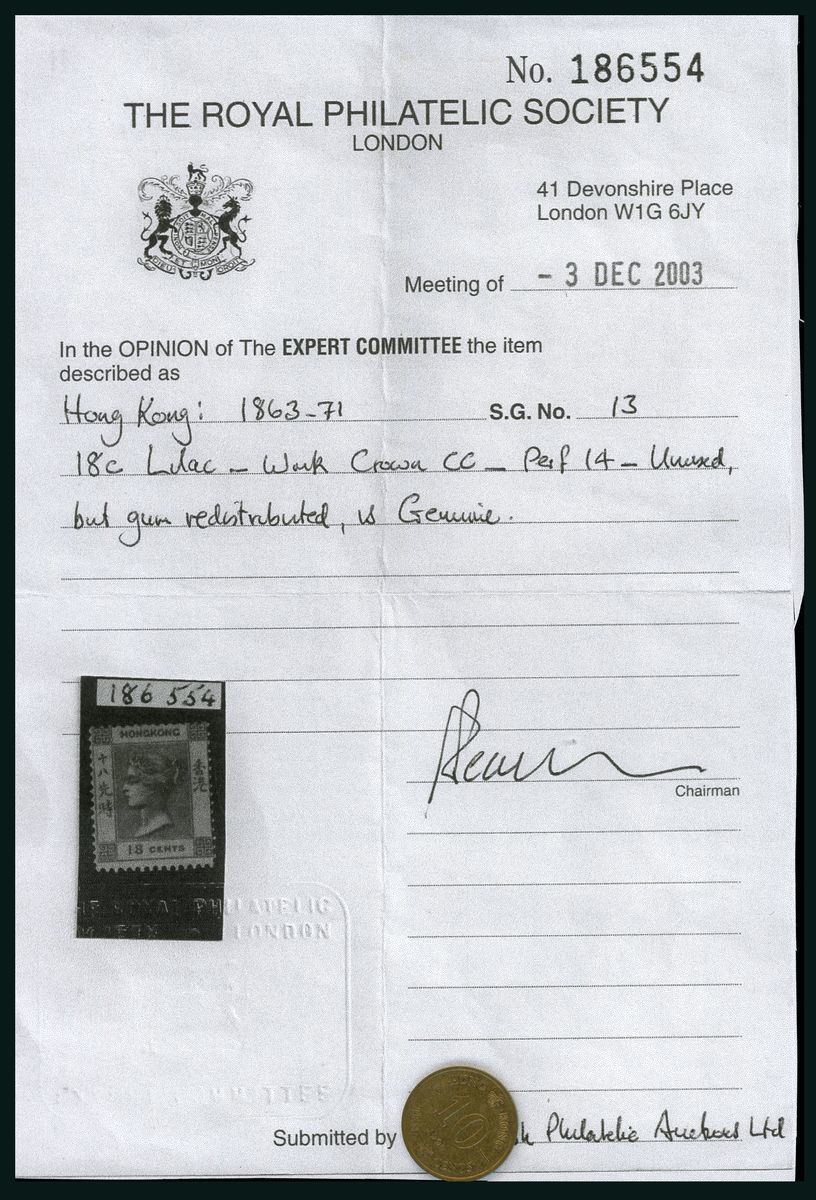 No. 186554
THE ROYAL PHILATELIC SOCIETY
LONDON
41 Devonshire Place
London W1G 6JY
Meeting of - 3 DEC 2003
In the OPINION of The EXPERT COMMITTEE the item
described as
Hong Kong: 1863-71 S.G. No. 13
18c Lilac - Wmk Crown CC - Perf 14 - Unused,
but gum redistributed, is Genuine.
186 554
HONGKONG
十八先時
香港
18 CENTS
Chairman
THE ROYAL PHILATELIC
SOCIETY LONDON
COMMITTEE
10
CENTS
Submitted by Philatelic Auctions Ltd